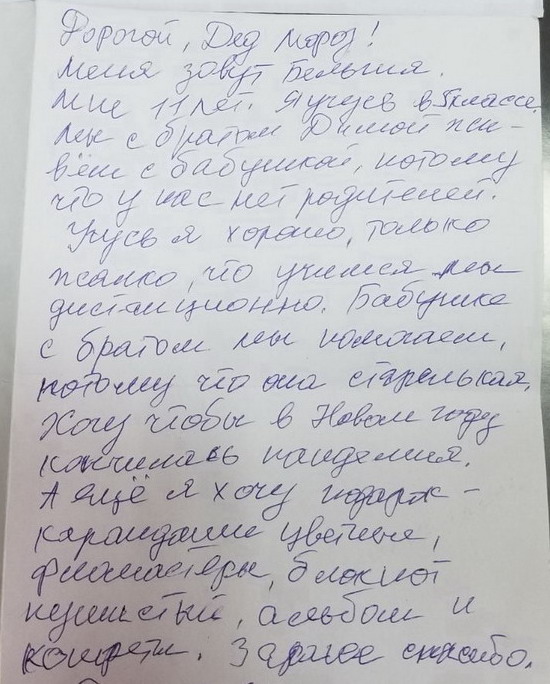 Дорогой, Дед Мороз!
Меня зовут
Мне 11 лет. Я учусь в 5 классе.
Мы с братом Димой жи-
вём с бабушкой, потому
что у нас нет родителей.
Учусь я хорошо, только
жалко, что учимся мы
дистанционно. Бабушке
с братом мы помогаем,
потому что она старенькая.
Хочу чтобы в Новом году
кончилась пандемия.
А ещё я хочу подарк -
карандаши цветные,
фломастеры, блокнот
пушистый, альбом и
конфеты. Заранее спасибо.